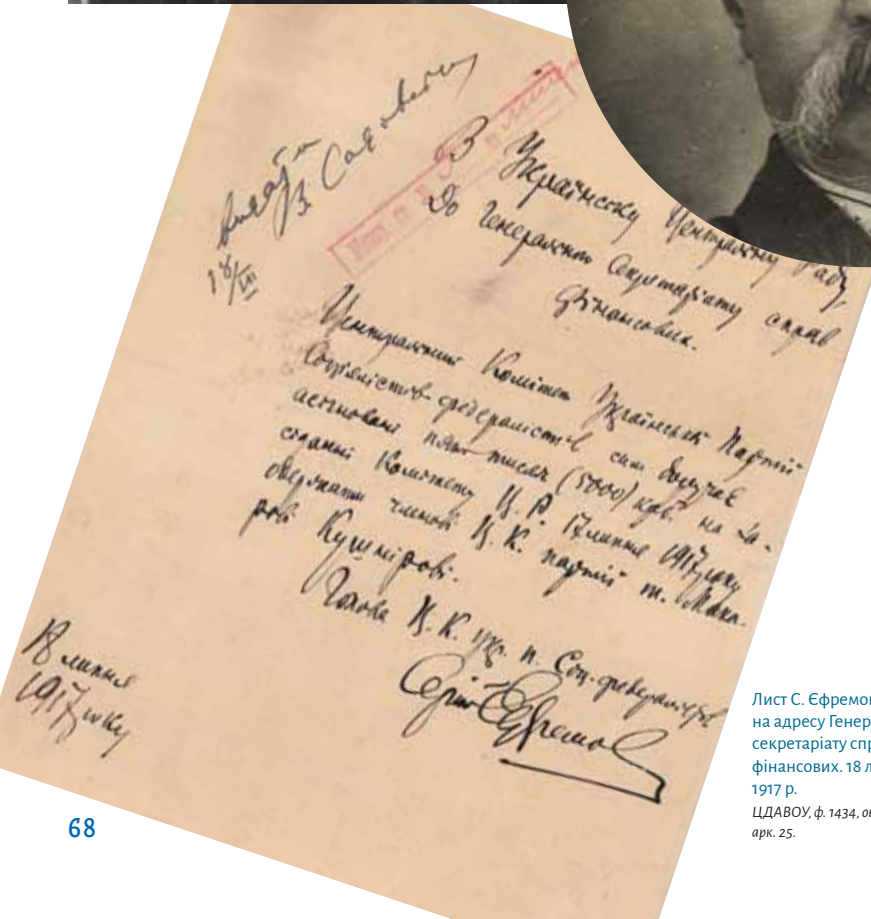 видати
В Садовский
18/VII
В Українську Центральну Раду,
До Генерального Секретаріату справ
фінансових.
Центральний Комітет Української Партії
Соціялістів-федералістів сим доручає
асігновані пять тисяч (5000) карб. на за-
сіданні Комітету Ц. Р. 17 липня 1917 року
одержати членові Ц. К. партії т. Мака-
рові Кушнірові.
Голова Ц. К. укр. п. Соц.-федералістів
Сергій Єфремов
18 липня
1917 року
Лист С. Єфремов
на адресу Генер
секретаріату спр
фінансових. 18 л
1917 р.
ЦДАВОУ, ф. 1434, оп
арк. 25.
68